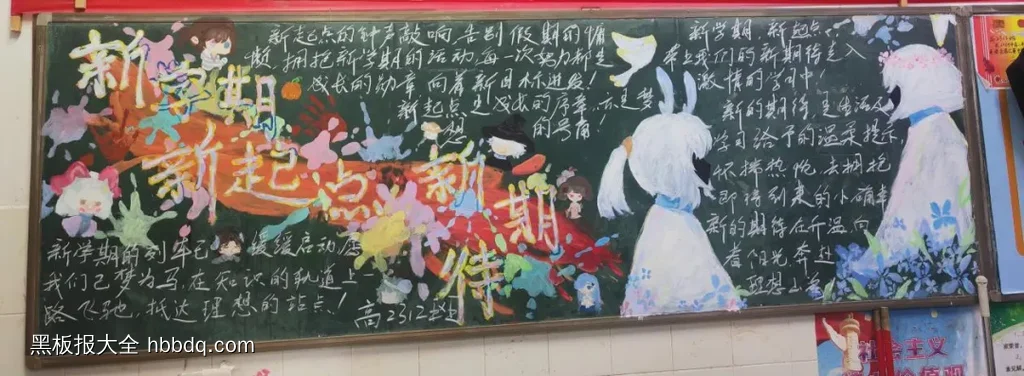 新学期
新起点
新期待
新起点的钟声敲响,告别假期的慵
懒,拥抱新学期的活动,每一次努力新是
成长的勋章,向着新目标进发!
新起点是成长的序章,亦是梦
想的号角!
新学期的列车已缓缓启动,愿
我们已梦为马,在知识的轨道上一
路飞驰,抵达理想的站点!
高2312班
新学期 新起点
带上我们的新期待走入
激情的学习中!
新的期待是生活及
学习给予的温柔提示
保持热忱,去拥抱
即将到来的小确幸
新的期待在于迎向
着阳光奔赴
黑板报大全 hbbdq.com
社会主义